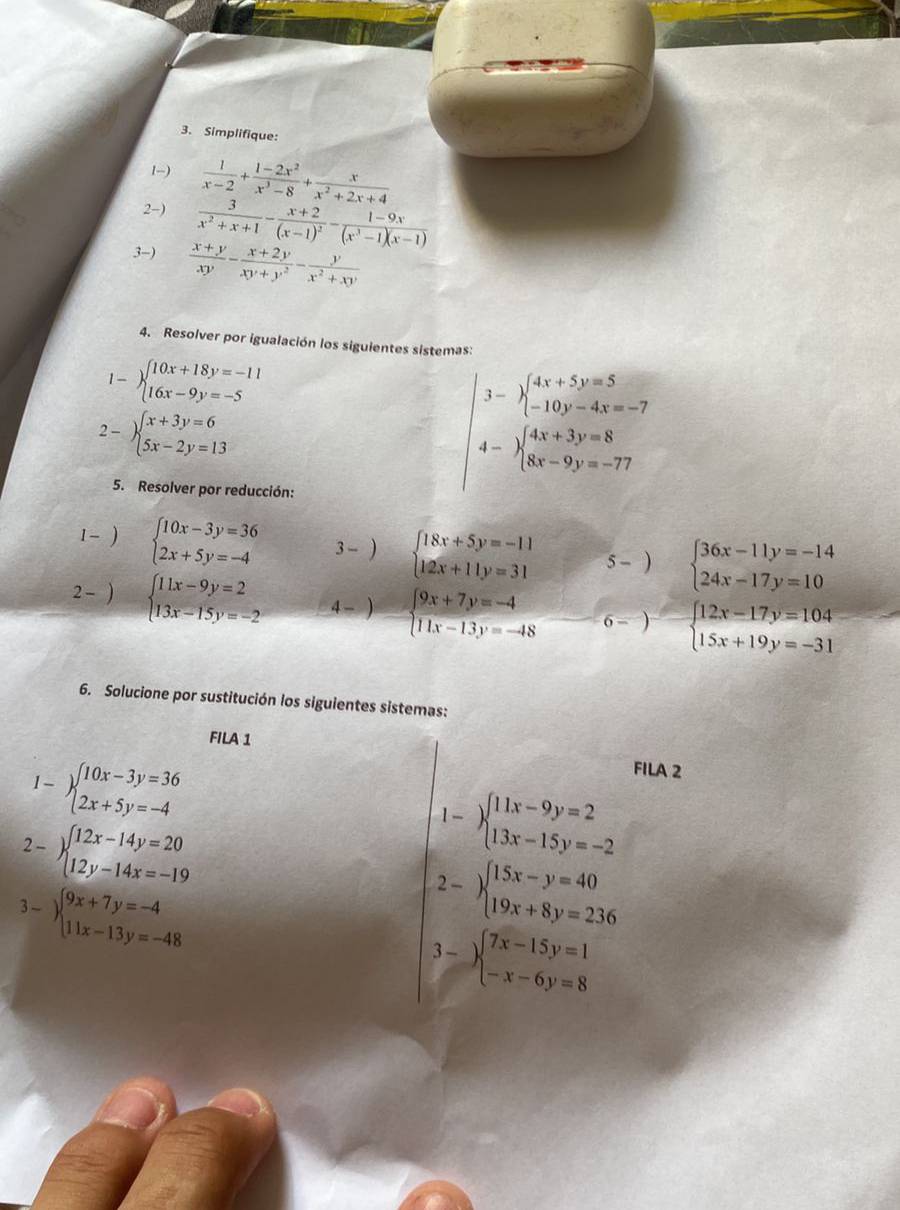 3. Simplifique:
1-) \frac{1}{x-2}+\frac{1-2x^2}{x^3-8}+\frac{x}{x^2+2x+4}
2-) \frac{3}{x^2+x+1}-\frac{x+2}{(x-1)^2}-\frac{1-9x}{(x^3-1)(x-1)}
3-) \frac{x+y}{xy}-\frac{x+2y}{xy+y^2}-\frac{y}{x^2+xy}
4. Resolver por igualación los siguientes sistemas:
1-) {10x+18y=-11
16x-9y=-5
2-) {x+3y=6
5x-2y=13
3-) {4x+5y=5
-10y-4x=-7
4-) {4x+3y=8
8x-9y=-77
5. Resolver por reducción:
1-) {10x-3y=36
2x+5y=-4
2-) {11x-9y=2
13x-15y=-2
3-) {18x+5y=-11
12x+11y=31
4-) {9x+7y=-4
11x-13y=-48
5-) {36x-11y=-14
24x-17y=10
6-) {12x-17y=104
15x+19y=-31
6. Solucione por sustitución los siguientes sistemas:
FILA 1
1-) {10x-3y=36
2x+5y=-4
2-) {12x-14y=20
12y-14x=-19
3-) {9x+7y=-4
11x-13y=-48
FILA 2
1-) {11x-9y=2
13x-15y=-2
2-) {15x-y=40
19x+8y=236
3-) {7x-15y=1
-x-6y=8